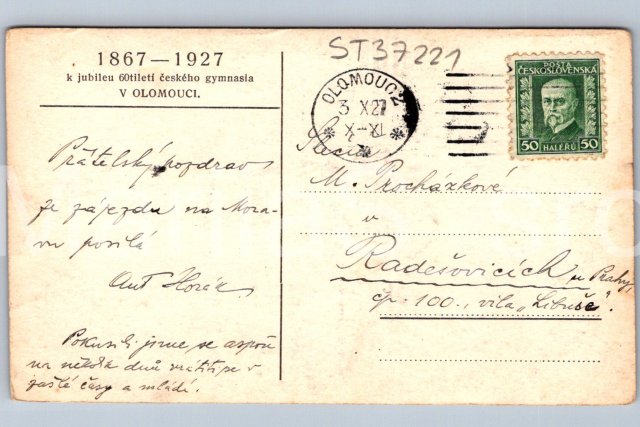 1867—1927
k jubileu 60tiletí českého gymnasia
V OLOMOUCI.
ST37221
OLOMOUC 2
3 X 27
X-XI
POŠTA
ČESKOSLOVENSKÁ
50 HALÉŘŮ 50
Přátelský pozdrav
ze zájezdu na Mora-
vu posílá
Ant Horák
Pokusili jsme se aspoň
na několik dnů vrátiti se v
zašlé časy a mládí.
Slečna
M. Procházkové
v
Radešovicích u Prahy,
čp. 100., vila „Libuše".